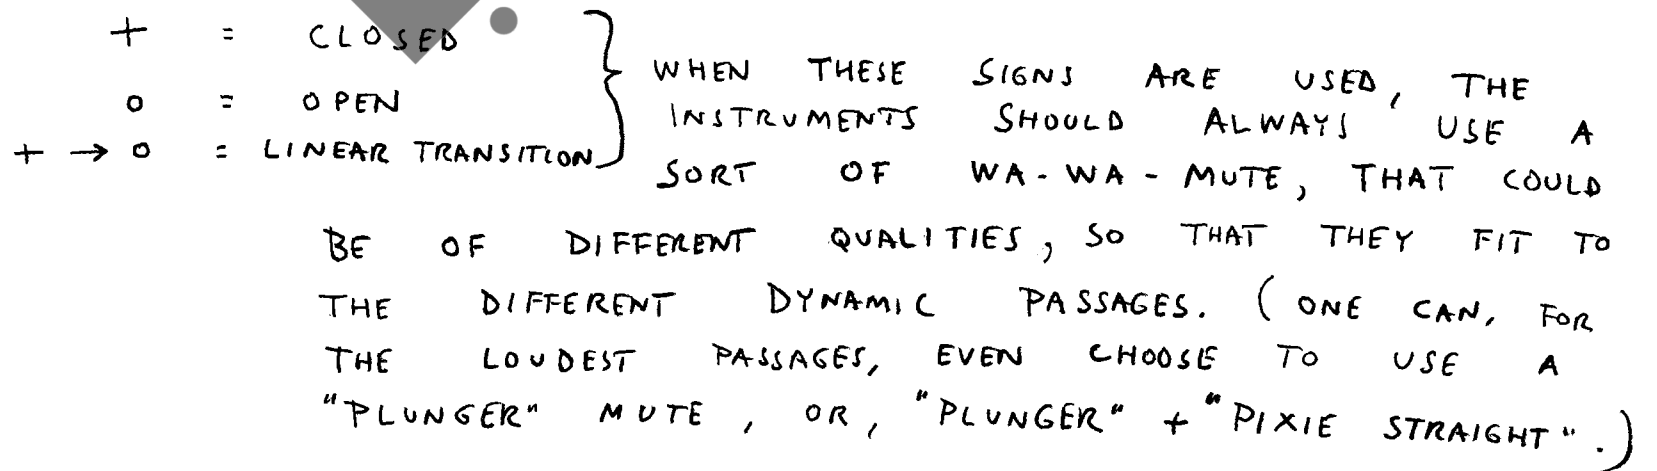 + = CLOSED
o = OPEN
+ → o = LINEAR TRANSITION
WHEN THESE SIGNS ARE USED, THE
INSTRUMENTS SHOULD ALWAYS USE A
SORT OF WA-WA-MUTE, THAT COULD
BE OF DIFFERENT QUALITIES, SO THAT THEY FIT TO
THE DIFFERENT DYNAMIC PASSAGES. (ONE CAN, FOR
THE LOUDEST PASSAGES, EVEN CHOOSE TO USE A
"PLUNGER" MUTE, OR, "PLUNGER" + "PIXIE STRAIGHT".)